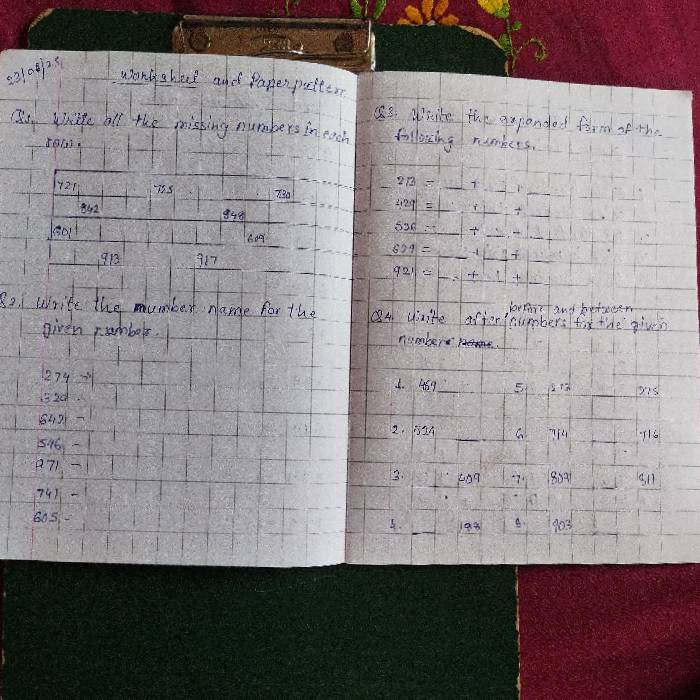 23/08/25
Worksheet and Paperpattern
Q1. Write all the missing numbers in each
row.
721 725 730
842 848
601 609
913 917
Q2. Write the number name for the
given number.
274 →
320 -
642 -
546 -
971 -
741 -
605 -
Q3. Write the expanded form of the
following numbers.
213 = __ + __ + __
429 = __ + __ + __
536 = __ + __ + __
679 = __ + __ + __
921 = __ + __ + __
before and between
Q4. Write after numbers for the given
number
1. 469 __ 5. 273 __ 275
2. 524 __ 6. 714 __ 716
3. __ 409 7. 809 __ 811
4. __ 199 8. 903 __